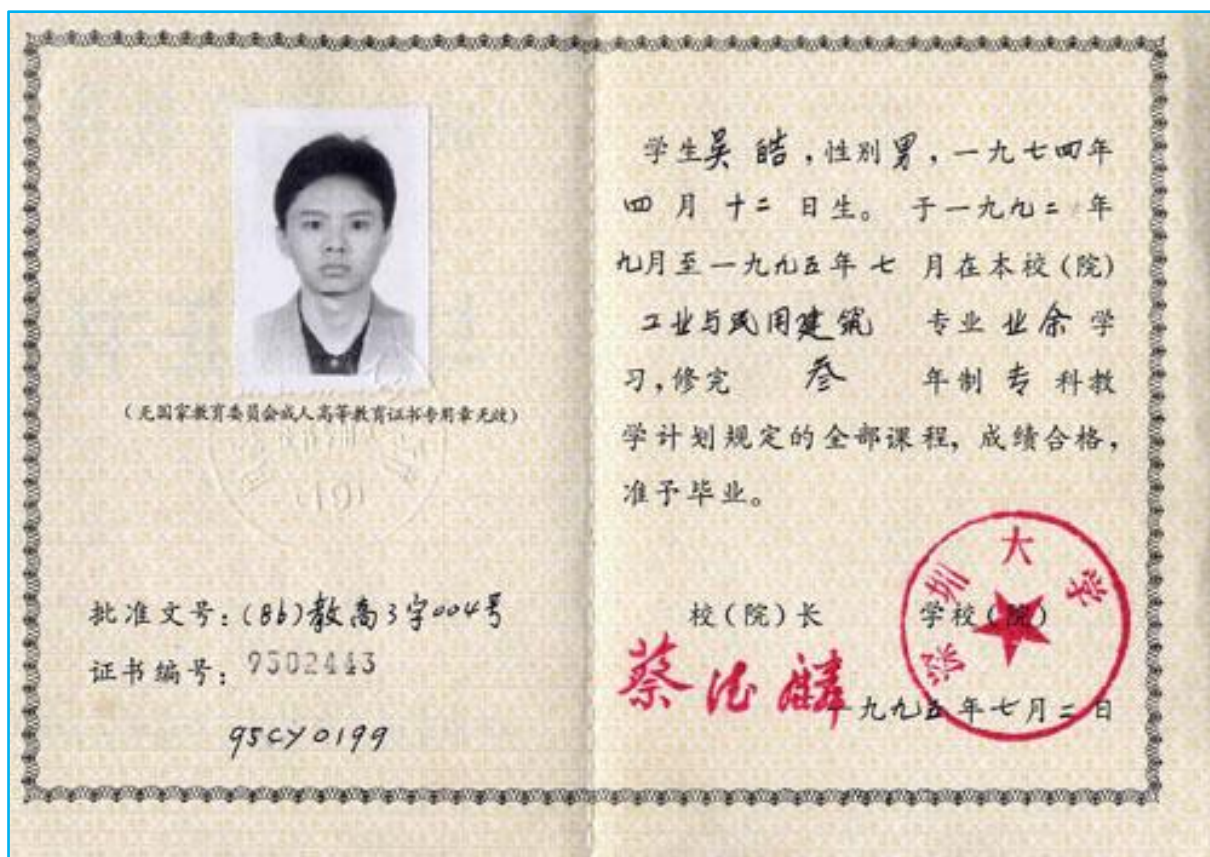 (无国家教育委员会成人高等教育证书专用章无效)
批准文号:(86)教高3字004号
证书编号:9502443
95CY0199
学生吴皓,性别男,一九七四年
四月十二日生。于一九九二年
九月至一九九五年七月在本校(院)
工业与民用建筑 专业业余学
习,修完 叁 年制专科教
学计划规定的全部课程,成绩合格,
准予毕业。
校(院)长 学校(院)
蔡德麟
一九九五年七月二日
深圳大学